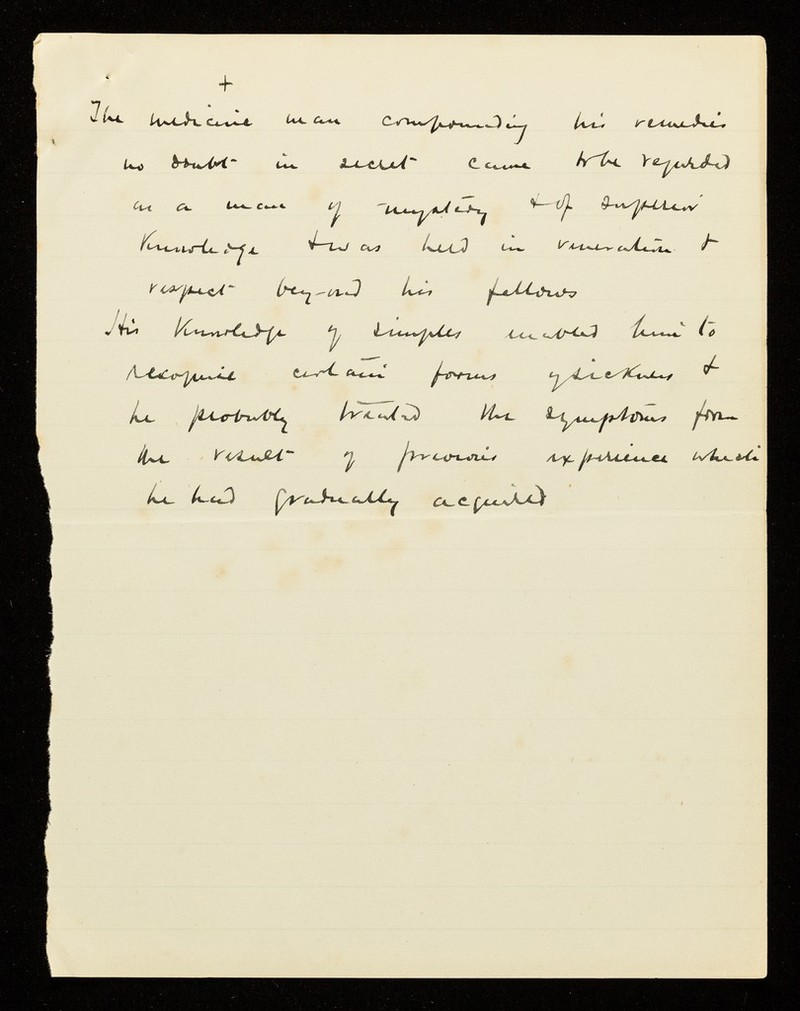 +
The medicine man compounding his remedies
no doubt in secret came to be regarded
as a man of mystery & of superior
Knowledge & was held in veneration &
respect beyond his fellows
His Knowledge of simples enabled him to
recognise certain forms of sickness &
he probably treated the symptoms form
the result of previous experience which
he had gradually acquired